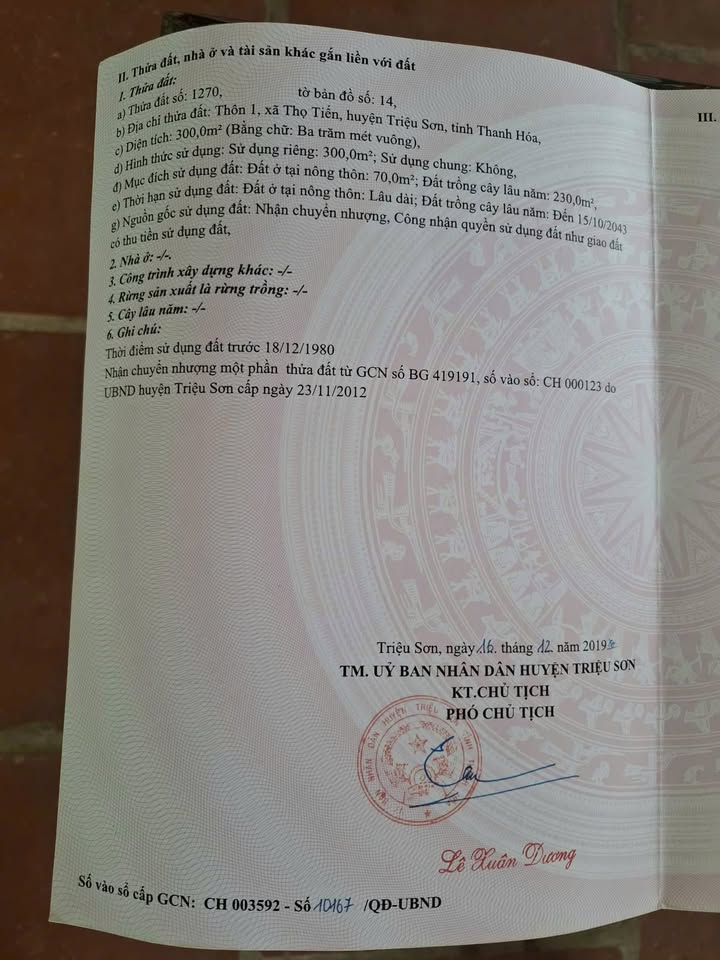 II. Thửa đất, nhà ở và tài sản khác gắn liền với đất
1. Thửa đất:
a) Thửa đất số: 1270, tờ bản đồ số: 14,
b) Địa chỉ thửa đất: Thôn 1, xã Thọ Tiến, huyện Triệu Sơn, tỉnh Thanh Hóa,
c) Diện tích: 300,0m² (Bằng chữ: Ba trăm mét vuông),
d) Hình thức sử dụng: Sử dụng riêng: 300,0m²; Sử dụng chung: Không,
đ) Mục đích sử dụng đất: Đất ở tại nông thôn: 70,0m²; Đất trồng cây lâu năm: 230,0m²,
e) Thời hạn sử dụng đất: Đất ở tại nông thôn: Lâu dài; Đất trồng cây lâu năm: Đến 15/10/2043
g) Nguồn gốc sử dụng đất: Nhận chuyển nhượng, Công nhận quyền sử dụng đất như giao đất
có thu tiền sử dụng đất,
2. Nhà ở: -/-.
3. Công trình xây dựng khác: -/-
4. Rừng sản xuất là rừng trồng: -/-
5. Cây lâu năm: -/-
6. Ghi chú:
Thời điểm sử dụng đất trước 18/12/1980
Nhận chuyển nhượng một phần thửa đất từ GCN số BG 419191, số vào sổ: CH 000123 do
UBND huyện Triệu Sơn cấp ngày 23/11/2012
III.
Triệu Sơn, ngày 16 tháng 12 năm 2019
TM. UỶ BAN NHÂN DÂN HUYỆN TRIỆU SƠN
KT.CHỦ TỊCH
PHÓ CHỦ TỊCH
Lê Xuân Dương
Số vào sổ cấp GCN: CH 003592 - Số 10167 /QĐ-UBND